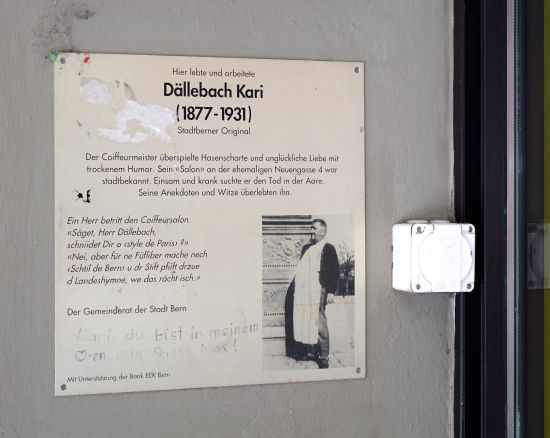 Hier lebte und arbeitete
Dällebach Kari
(1877-1931)
Stadtberner Original
Der Coiffeurmeister überspielte Hasenscharte und unglückliche Liebe mit
trockenem Humor. Sein «Salon» an der ehemaligen Neuengasse 4 war
stadtbekannt. Einsam und krank suchte er den Tod in der Aare.
Seine Anekdoten und Witze überlebten ihn.
Ein Herr betritt den Coiffeursalon.
«Säget, Herr Dällebach,
schniidet Dir o ‹style de Paris› ?»
«Nei, aber für ne Füfliber mache nech
‹Schtil de Bern› u dr Stift pfiift drzue
d Landeshymne, we das rächt isch.»
Der Gemeinderat der Stadt Bern
Kari du bist in meinem
♡-en
Mit Unterstützung der Bank EEK Bern